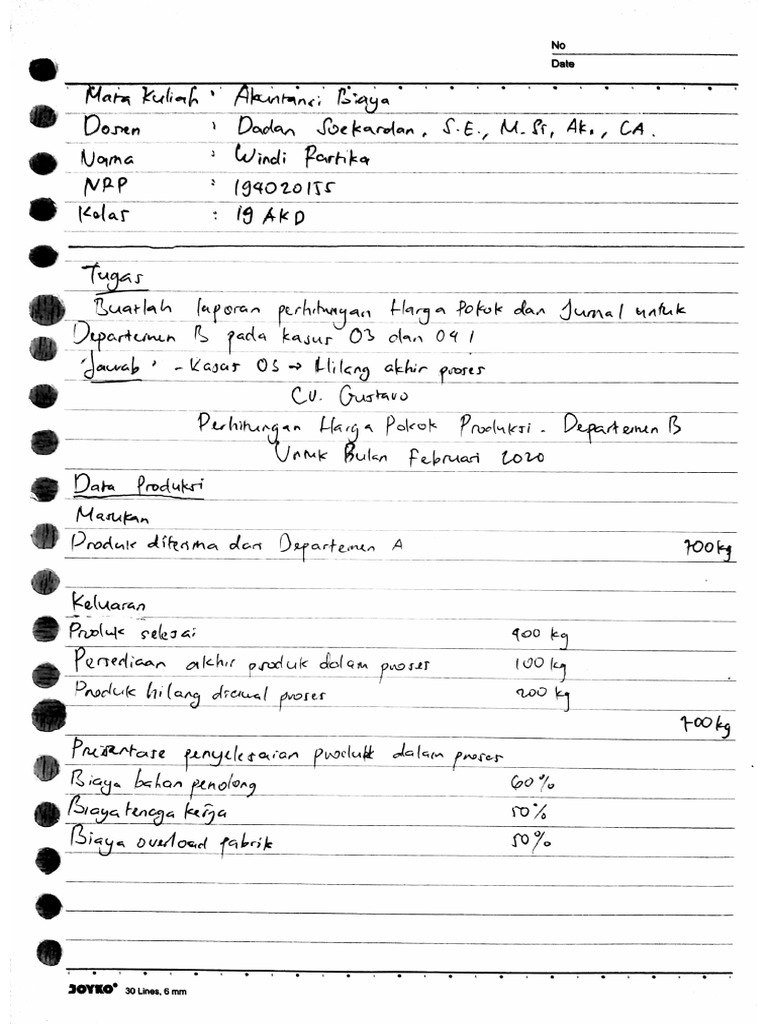 No
Date
Mata Kuliah : Akuntansi Biaya
Dosen : Dadan Soekardan, S.E., M.Si, Ak., CA.
Nama : Windi Kartika
NRP : 194020155
Kelas : 19 AKD
Tugas
Buatlah laporan perhitungan Harga Pokok dan Jurnal untuk
Departemen B pada kasus 03 dan 04!
Jawab : - Kasus 03 → Hilang akhir proses
CV. Gustavo
Perhitungan Harga Pokok Produksi - Departemen B
Untuk Bulan Februari 2020
Data Produksi
Masukan
Produk diterima dari Departemen A 700 kg
Keluaran
Produk selesai 400 kg
Persediaan akhir produk dalam proses 100 kg
Produk hilang diawal proses 200 kg
700 kg
Presentase penyelesaian produk dalam proses
Biaya bahan penolong 60%
Biaya tenaga kerja 50%
Biaya overload fabrik 50%
JOYKO 30 Lines, 6 mm